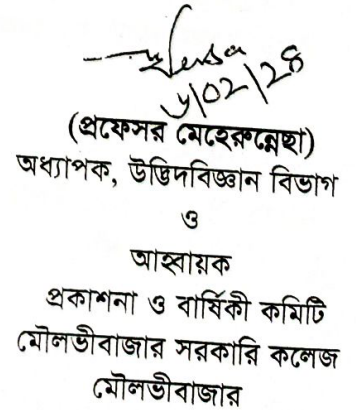 ৮/০২/২৪
(প্রফেসর মেহেরুন্নেছা)
অধ্যাপক, উদ্ভিদবিজ্ঞান বিভাগ
ও
আহ্বায়ক
প্রকাশনা ও বার্ষিকী কমিটি
মৌলভীবাজার সরকারি কলেজ
মৌলভীবাজার